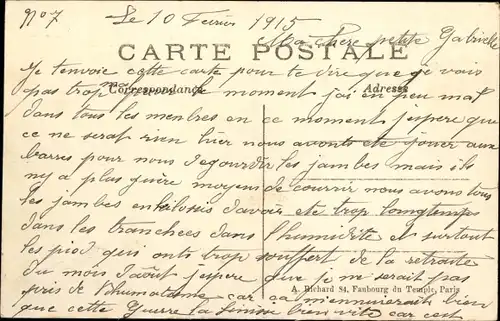 No 7 - Le 10 Fevrier 1915
Ma chere petite Gabrielle
CARTE POSTALE
Je t'envoie cette carte pour te dire que je vais
Correspondance Adresse
pas trop mal pour le moment j'ai en peu mal
dans tous les menbres en ce moment j'espere que
ce ne serat rien hier nous avonts ete jouer aux
barres pour nous degourdir les jambes mais ils
n'y a plus guère moyen de courrir nous avons tous
les jambes enkilosis d'avoir ete trop longtemps
dans les tranchees dans l'humidite et surtout
les pied qui onts trop souffert de la retraite
du mois d'aôut j'espere que je me serait pas
A. Richard 84, Faubourg du Temple, Paris
pris de rhumatisme car ça m'ennuierait bien
que cette Guerre la finisse bien vite car c'est